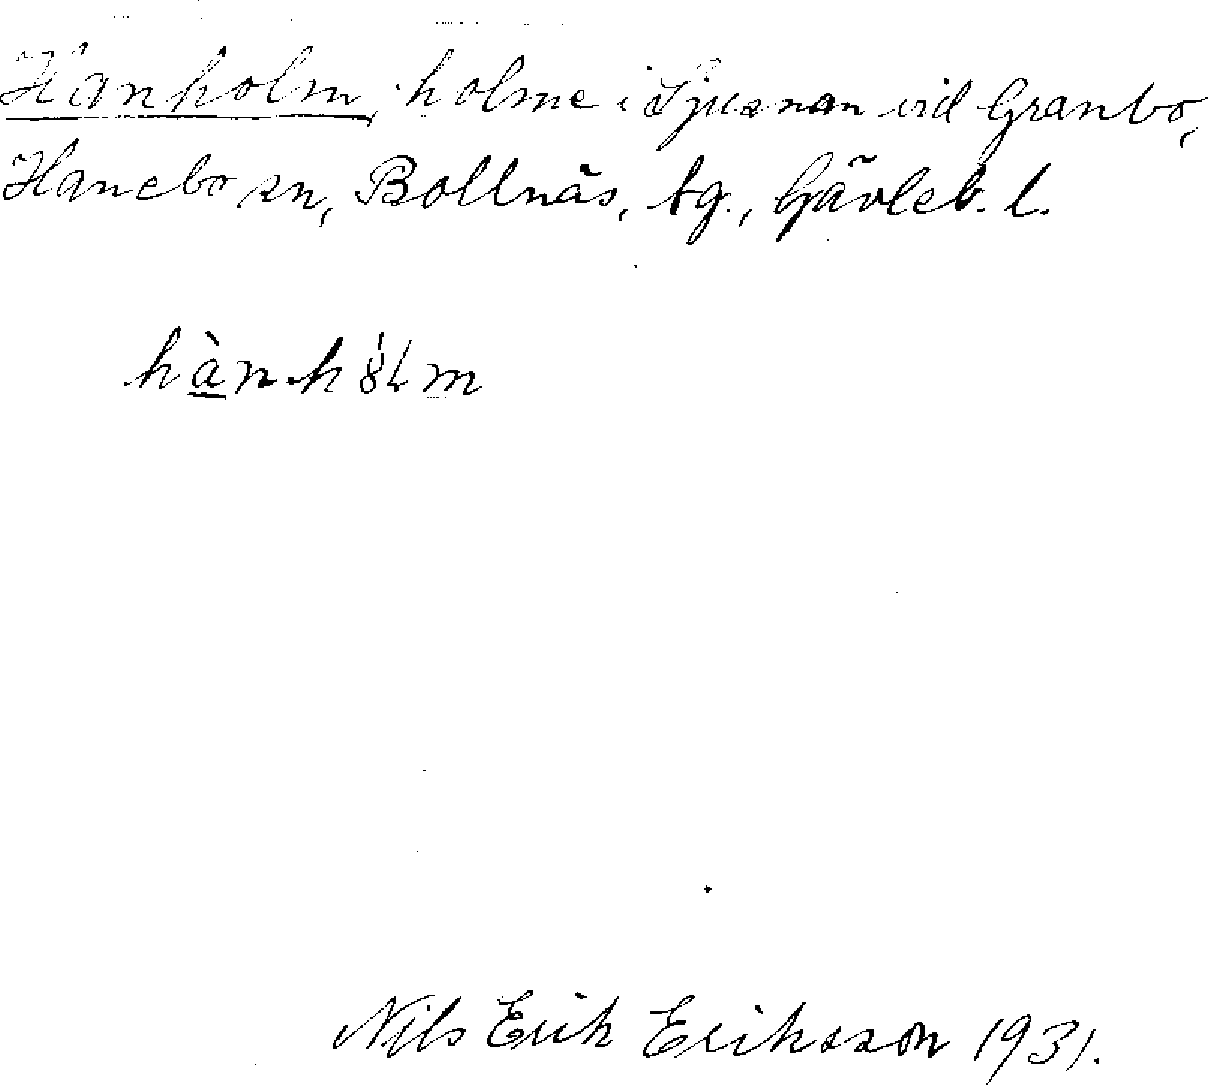 Hanholm, holme i Ljusnan vid Granbo,
Hanebo sn, Bollnäs, tg., Gävleb. l.
hàn-h
Nils Erik Eriksson 1931.